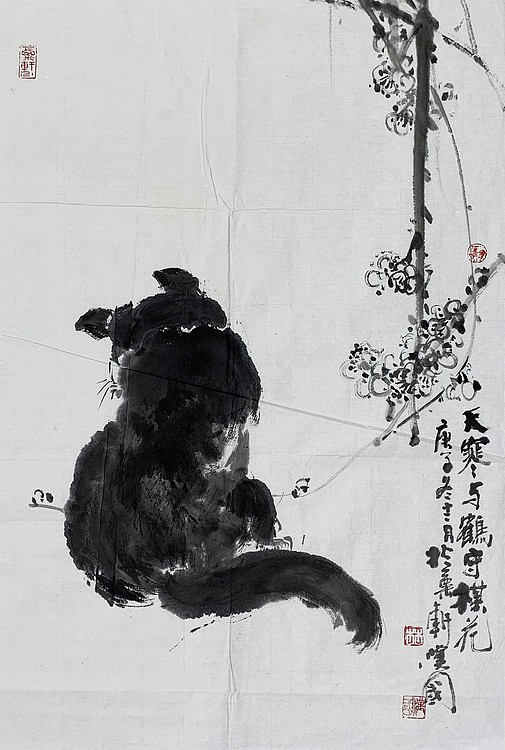 天寒与鹤守楳花
庚子冬十二月於華軒